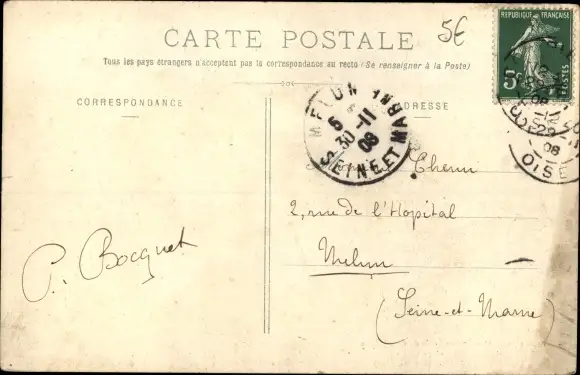 5€
CARTE POSTALE
Tous les pays étrangers n'acceptent pas la correspondance au recto (Se renseigner à la Poste)
RÉPUBLIQUE FRANÇAISE
5c
POSTES
CORRESPONDANCE
ADRESSE
MELUN
5
30-11
08
SEINE ET MARNE
29
08
OISE
Chenu
2, rue de l'Hopital
Melun
(Seine-et-Marne)
P. Bocquet